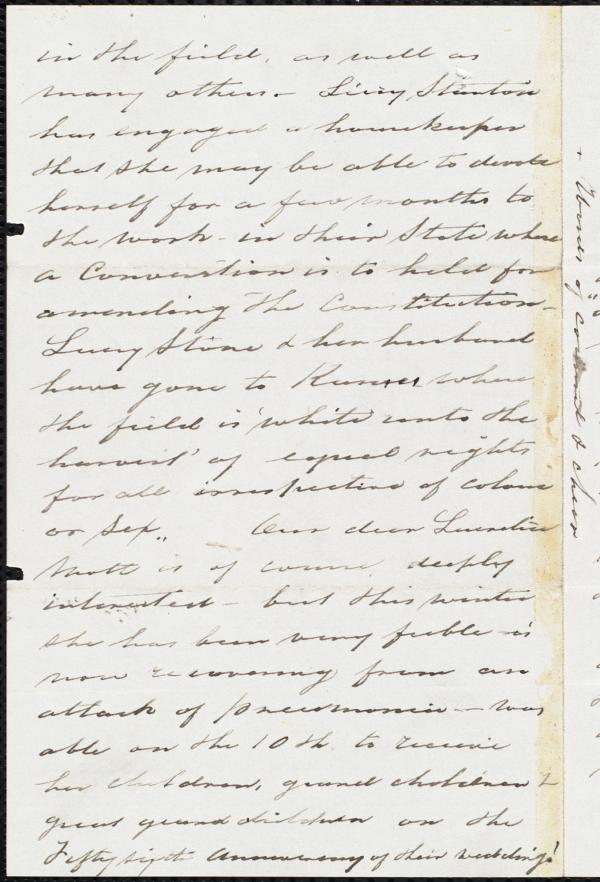 in the field, as well as
many others – Lizzy Stanton
has engaged a homekeeper
that she may be able to devote
herself for a few months to
the work – in their State where
a Convention is to held for
amending the Constitution –
Lucy Stone & her husband
have gone to Kansas where
the field is 'white unto the
harvest' of equal rights
for all irrespective of colour
or sex„ Our dear Lucretia
Mott is of course, deeply
interested – but this winter
she has been very feeble – is
now recovering from an
attack of pneumonia – was
able on the 10th. to receive
her children, grand children &
great grandchildren on the
Fifty sixth Anniversary of their wedding!
+ Words of & cheer